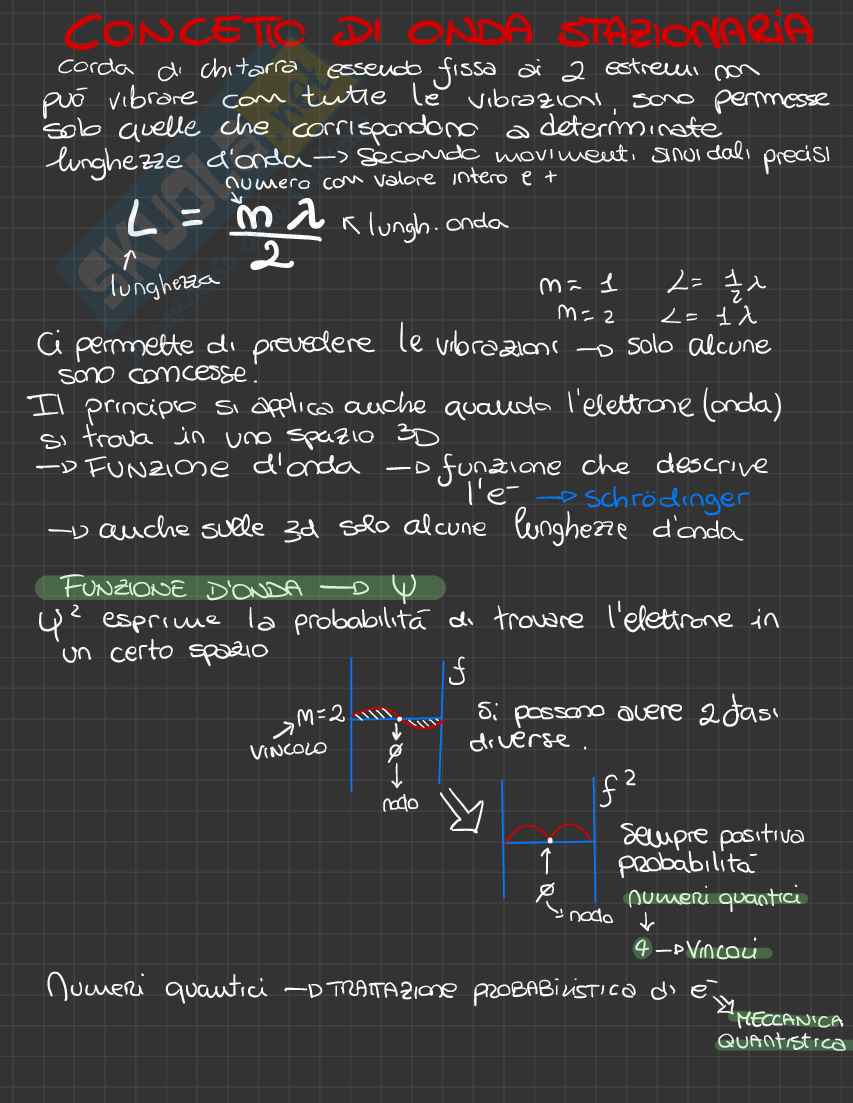 CONCETTO DI ONDA STAZIONARIA
corda di chitarra essendo fissa ai 2 estremi non
può vibrare con tutte le vibrazioni, sono permesse
solo quelle che corrispondono a determinate
lunghezze d'onda → secondo movimenti sinuidali precisi
numero con valore intero e +
L = nλ/2 ↖ lungh. onda
↑ lunghezza
n = 1 L = 1/2 λ
n = 2 L = 1 λ
Ci permette di prevedere le vibrazioni → solo alcune
sono concesse.
Il principio si applica anche quando l'elettrone (onda)
si trova in uno spazio 3D
→ FUNZIONE d'onda → funzione che descrive
l'e⁻ → Schrödinger
→ anche sulle 3d solo alcune lunghezze d'onda
FUNZIONE D'ONDA → Ψ
Ψ² esprime la probabilità di trovare l'elettrone in
un certo spazio
f
n = 2
VINCOLO
ø
nodo
Si possono avere 2 fasi
diverse.
f²
ø
nodo
Sempre positiva
probabilità
numeri quantici
↓
4 → Vincoli
Numeri quantici → TRATTAZIONE PROBABILISTICA di e⁻
MECCANICA
QUANTISTICA
SKUOLA.net